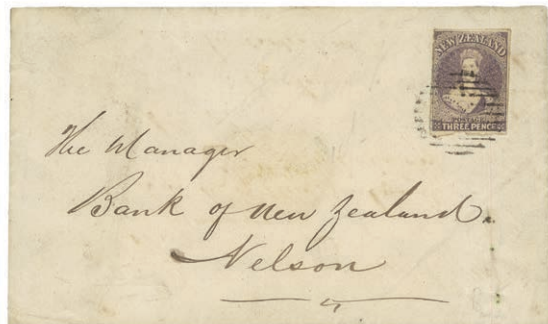 NEW ZEALAND
POSTAGE
THREE PENCE
The Manager
Bank of New Zealand.
Nelson